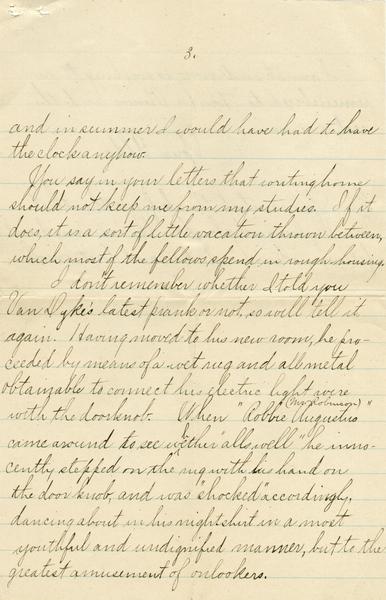 3.
and in summer I would have had to have
the clock anyhow.
You say in your letters that writing home
should not keep me from my studies. If it
does, it is a sort of little vacation thrown between,
which most of the fellows spend in rough housing.
I don't remember whether I told you
Van Dyke's latest prank or not, so will tell it
again. Having moved to his new room, he pro-
ceeded by means of a wet rug and all metal
obtainable to connect his electric light wire
(Mr. Robinson)
with the doorknob. When "Robbie Augustus"
came around to see whether "all's well," he inno-
cently stepped on the rug with his hand on
the door knob, and was "shocked" accordingly,
dancing about in his nightshirt in a most
youthful and undignified manner, but to the
greatest amusement of onlookers.